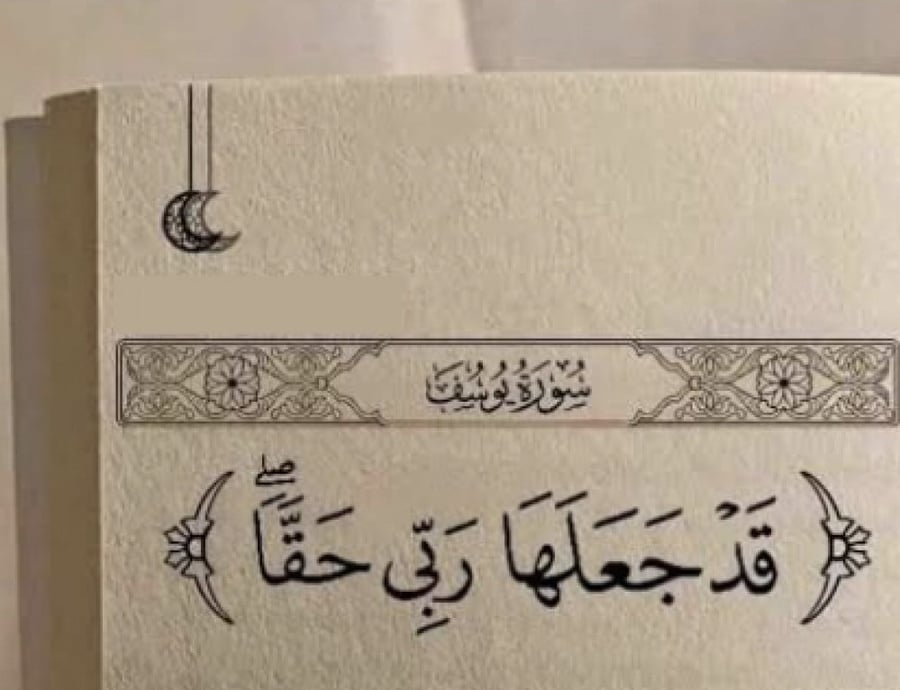 سُورَةُ يُوسُفَ
﴿ قَدْ جَعَلَهَا رَبِّي حَقًّا ۖ ﴾